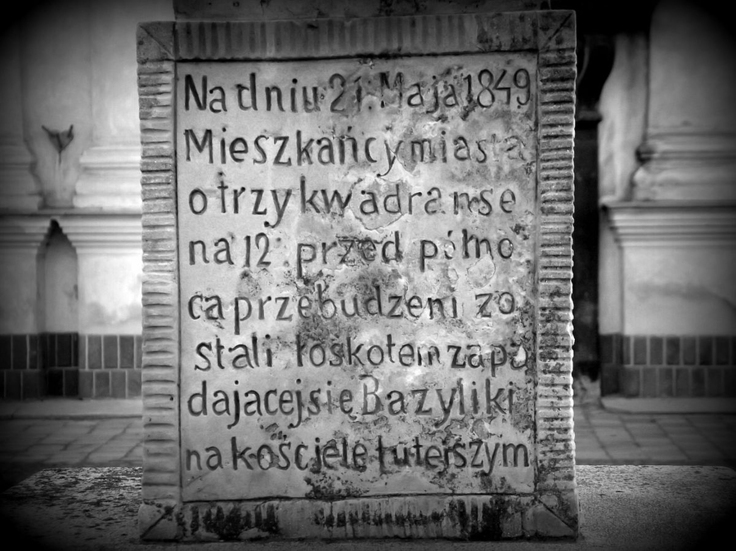 Na dniu 21. Maja 1849
Mieszkańcy miasta
o trzy kwadranse
na 12. przed półno
cą przebudzeni zo
stali łoskotem zapa
dającej się Bazyliki
na kościele tuteiszym